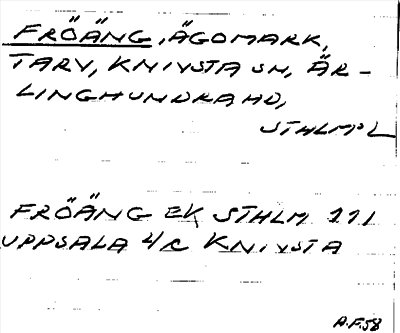 FRÖÄNG, ÄGOMARK,
TARV, KNIVSTA SN, ÄR-
LINGHUNDRA HD,
STHLMS L
FRÖÄNG EK STHLM 111
UPPSALA 4/c KNIVSTA
A.F.58